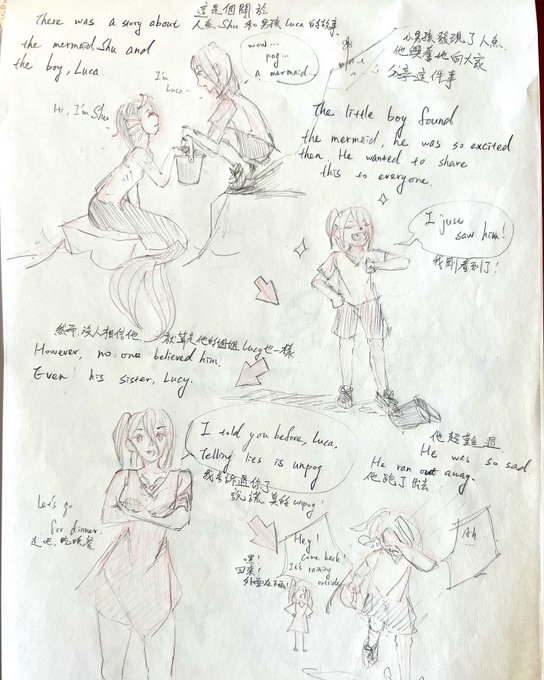 這是個關於
There was a story about
人魚 Shu 和男孩 Luca 的故事
the mermaid Shu and
the boy, Luca.
wow...
pog...
a mermaid...
I'm
Luca...
Hi, I'm Shu
小男孩發現了人魚.
他興奮地向大家
分享這件事
The little boy found
the mermaid, he was so excited
then. He wanted to share
this to everyone.
I just
saw him!
我剛看到了!
然而,沒人相信他, 就算是他的姐姐Lucy也一樣
However, no one believed him.
Even his sister, Lucy.
I told you before, Luca,
Telling lies is unpog
我告訴過你了
說謊真的unpog!
Let's go
for dinner.
走吧,吃晚餐
他超難過
He was so sad
He ran out away.
他跑了出去
Hey!
Come back!
It's rainy
outside
嘿!
回來!
外面在下雨!
Ah